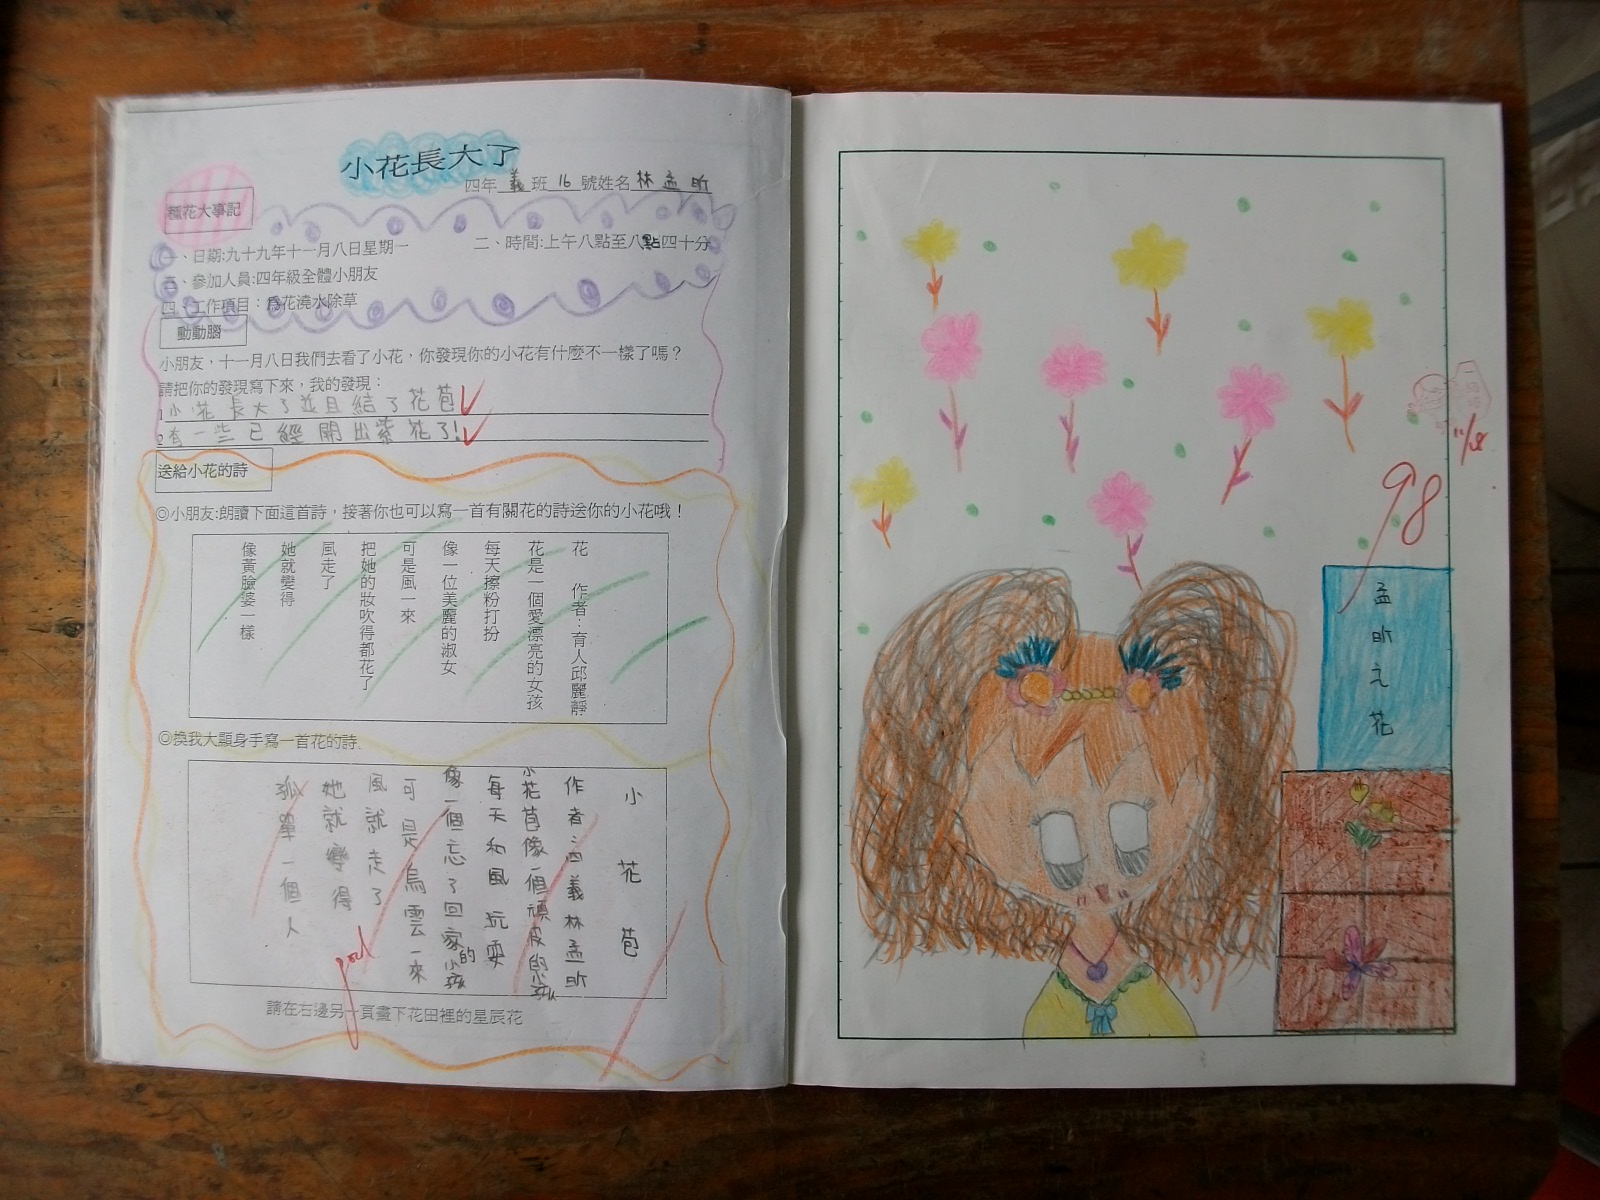 小花長大了
四年義班16號姓名林孟昕
種花大事記
一、日期:九十九年十一月八日星期一
二、時間:上午八點至八點四十分
三、參加人員:四年級全體小朋友
四、工作項目：為花澆水除草
動動腦
小朋友，十一月八日我們去看了小花，你發現你的小花有什麼不一樣了嗎？
請把你的發現寫下來，我的發現：
1小花長大了並且結了花苞
2有一些已經開出紫花了!
送給小花的詩
◎小朋友:朗讀下面這首詩，接著你也可以寫一首有關花的詩送你的小花哦！
花 作者：育人邱麗靜
花是一個愛漂亮的女孩
每天擦粉打扮
像一位美麗的淑女
可是風一來
把她的妝吹得都花了
風走了
她就變得
像黃臉婆一樣
◎換我大顯身手寫一首花的詩
小花苞
作者：四義林孟昕
小花苞像一個頑皮的小孩
每天和風玩耍
像一個忘了回家的小孩
可是烏雲一來
風就走了
她就變得
孤單一個人
good
請在右邊另一頁畫下花田裡的星辰花
98
孟昕之花